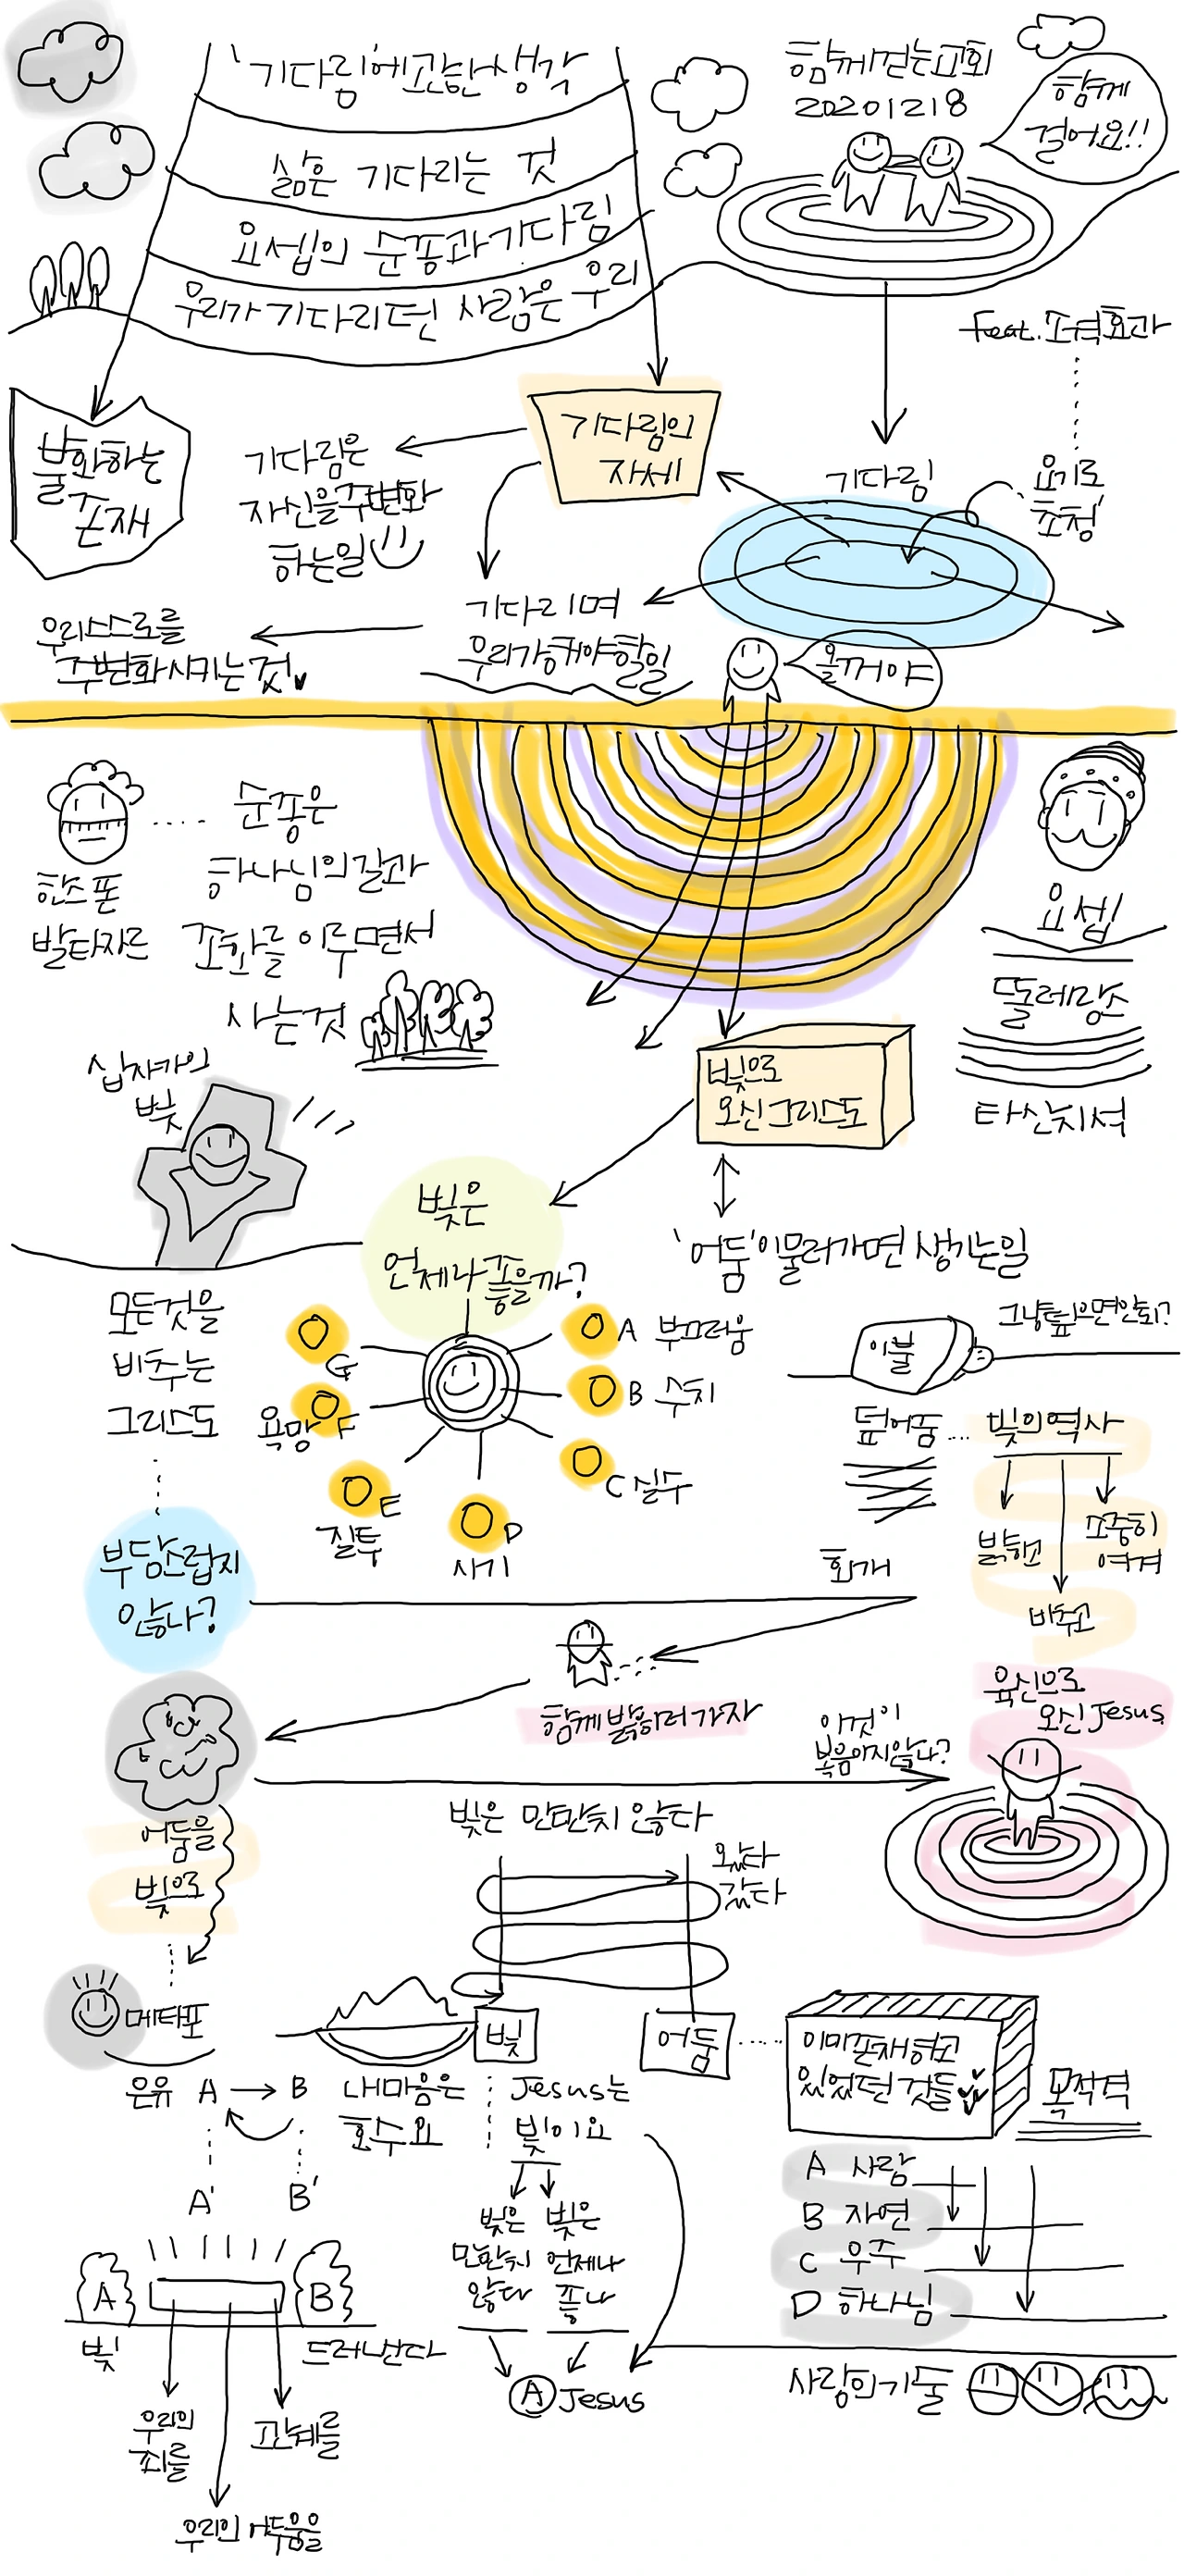 '기다림'에관한생각
삶은 기다리는 것
요셉의 순종과기다림
우리가기다리던 사람은 우리
함께걷는교회
20201218
함께
걸어요!!
불화하는
존재
기다림은
자신을주변화
하는일
기다림의
자세
기다림
요기로
초청
기다리며
우리가해야할일
우리스스로를
주변화시키는것
올꺼야
한스폰
발타자르
순종은
하나님의길과
조화를 이루면서
사는것
요셉
똘레랑스
타산지석
십자가의
빛
빛으로
오신그리스도
빛은
언제나좋을까?
'어둠'이물러가면 생기는일
모든것을
비추는
그리스도
A 부끄러움
B 수치
C 실수
D
사기
E
질투
욕망 F
G
이불
그냥덮으면안돼?
덮어둠 ... 빛의역사
밝히고
비추고
소중히
여겨
부담스럽지
않나?
회개
함께밝히러가자
육신으로
오신Jesus
이것이
복음이지않나?
빛은 만만치 않다
어둠을
빛으로
왔다
갔다
메타포
은유 A → B
A'
B'
내마음은
호수요
빛
어둠
Jesus는
빛이요
이미존재하고
있었던 것들
목적격
빛은
만만치
않다
빛은
언제나
좋나
A Jesus
A 사랑
B 자연
C 우주
D 하나님
사랑의기둘
A
B
빛
드러난다
우리의
죄를
관계를
우리의 어두움을